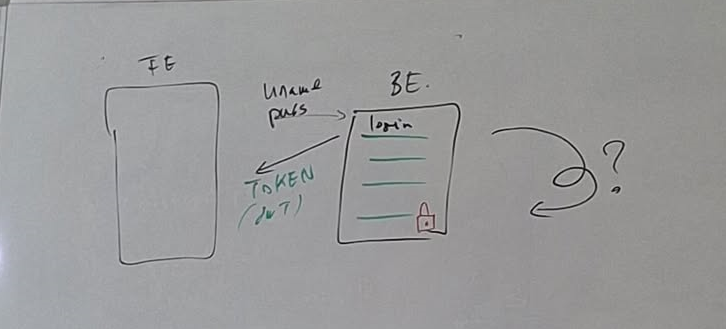 FE
BE.
Uname
pass
login
TOKEN
(JWT)
?